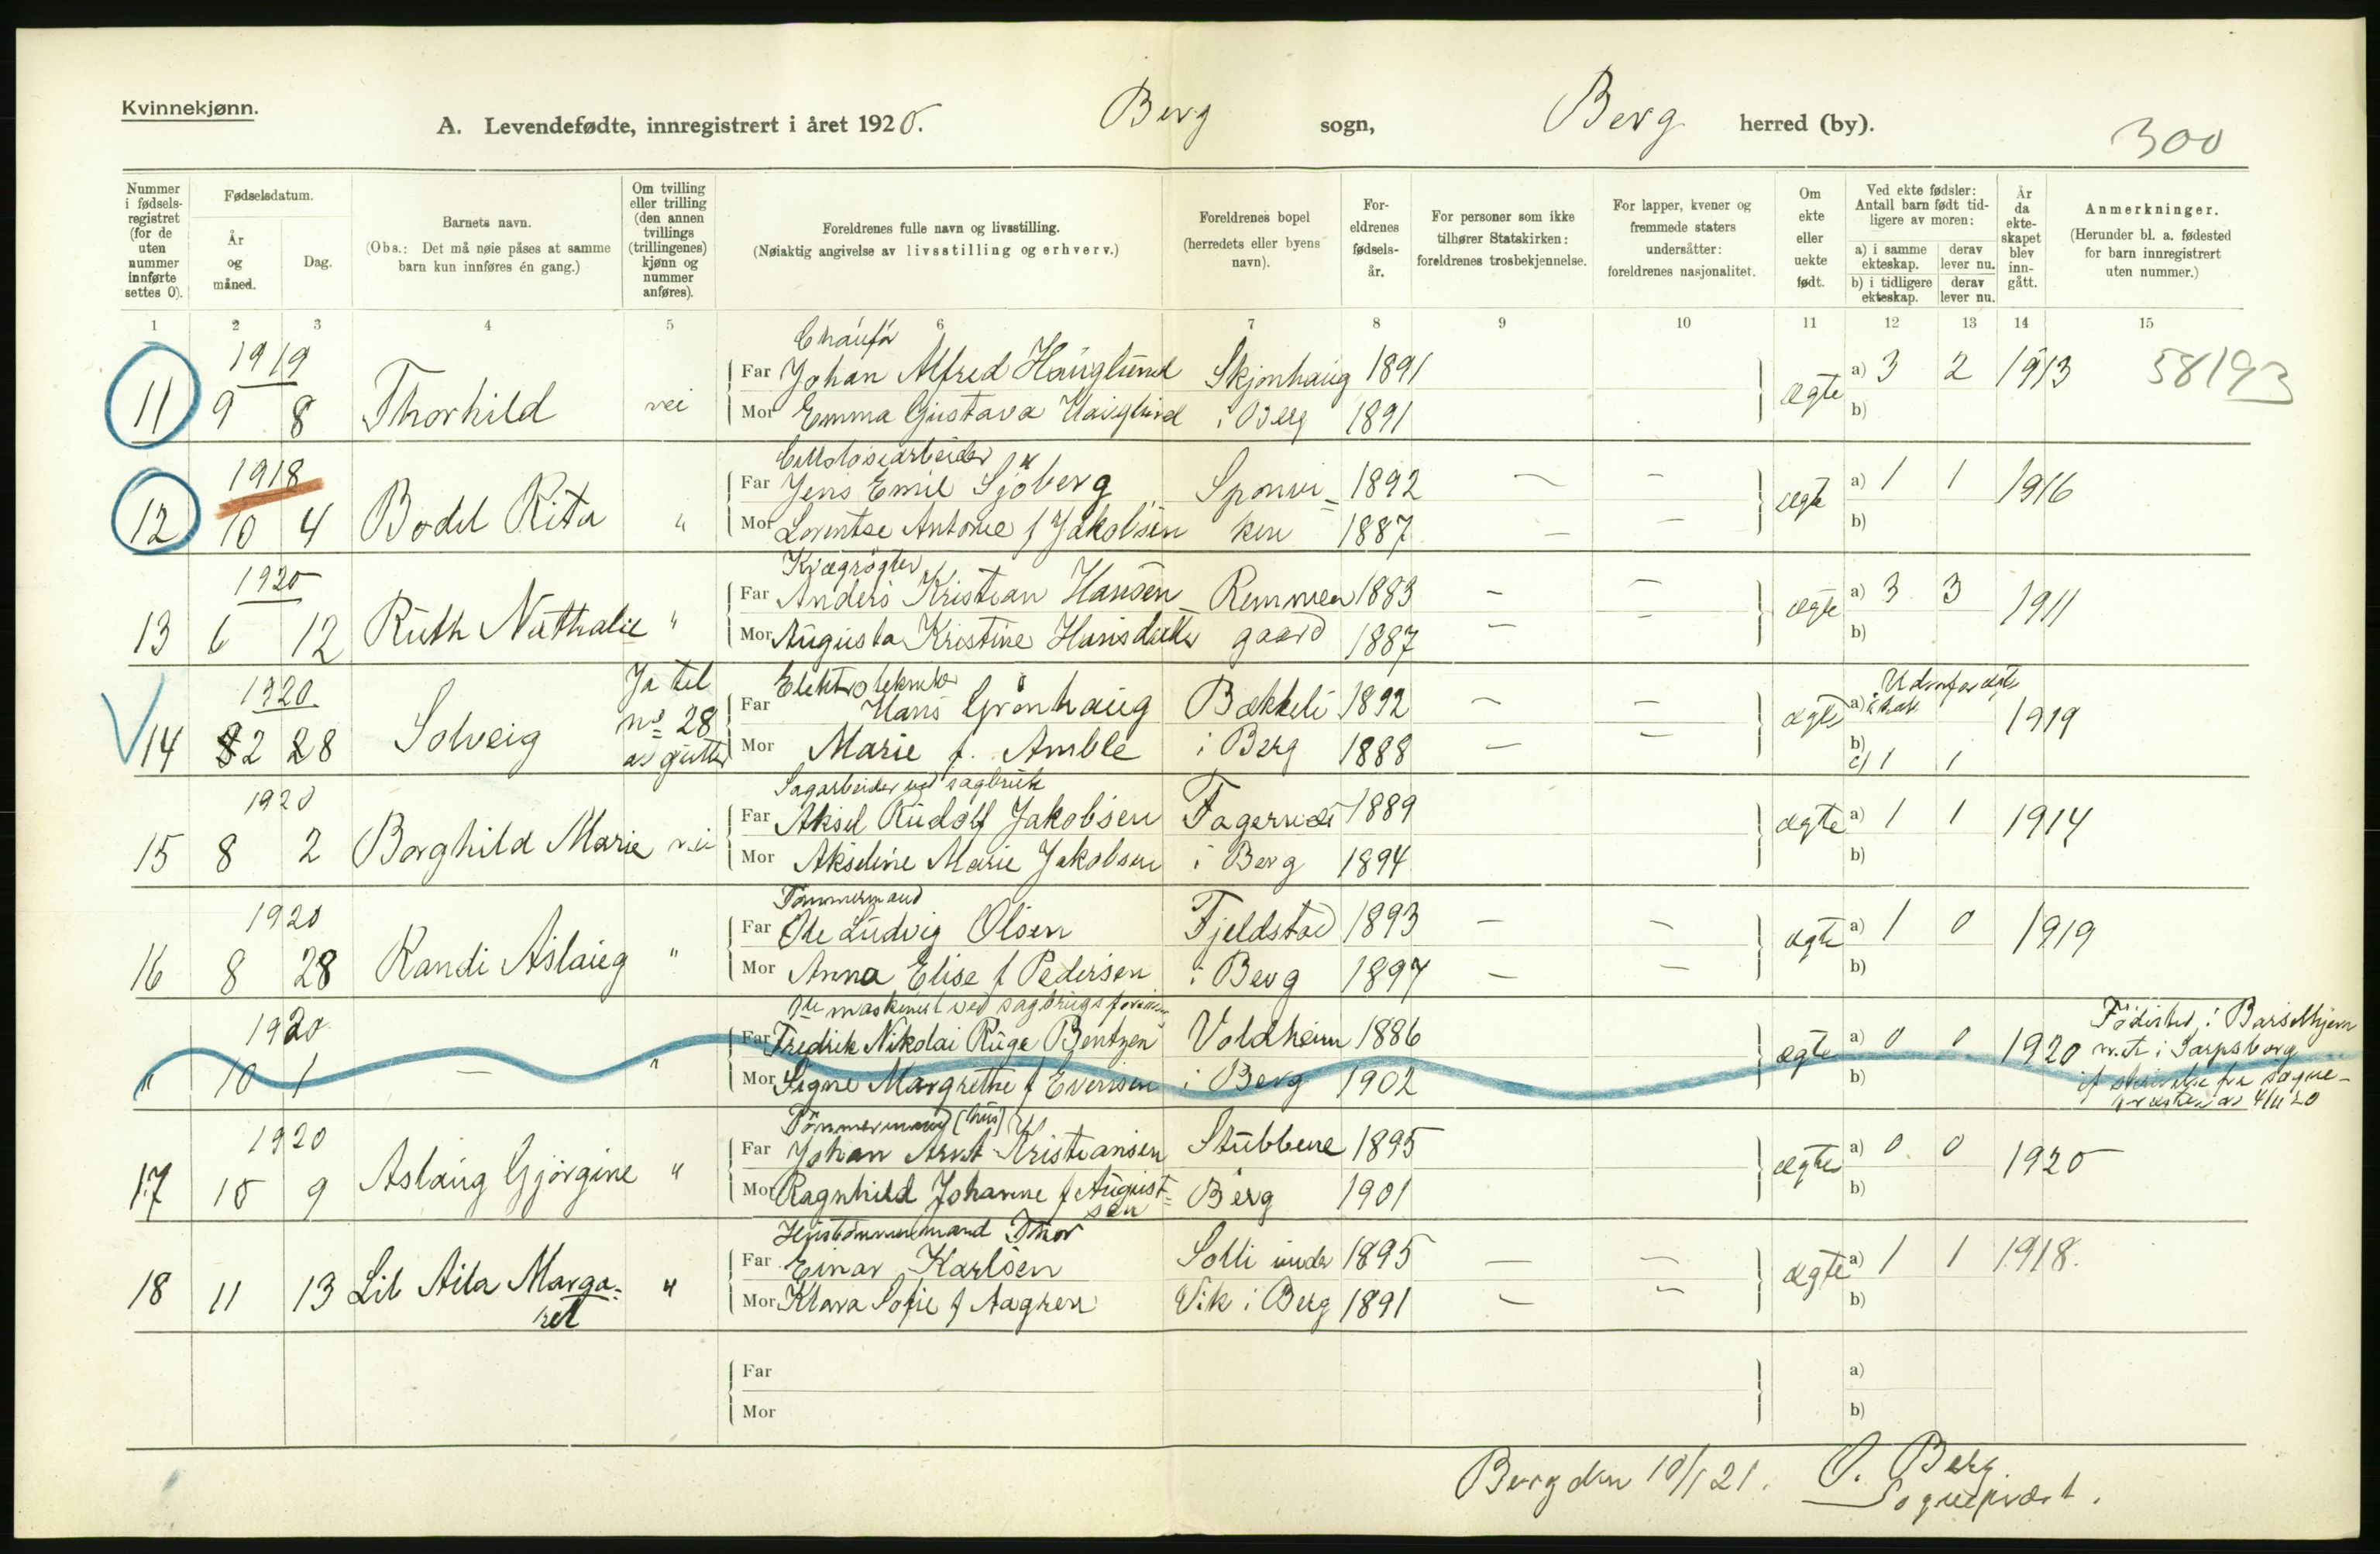 Kvinnekjønn.
A. Levendefødte, innregistrert i året 1920. Berg sogn, Berg herred (by). 300
Nummer i fødselsregistret (for de uten nummer innførte settes 0).
Fødselsdatum.
År og måned.
Dag.
Barnets navn.
(Obs.: Det må nøie påses at samme barn kun innføres én gang.)
Om tvilling eller trilling (den annen tvillings (trillingenes) kjønn og nummer anføres).
Foreldrenes fulle navn og livsstilling.
(Nøiaktig angivelse av livsstilling og erhverv.)
Foreldrenes bopel (herredets eller byens navn).
Foreldrenes fødselsår.
For personer som ikke tilhører Statskirken: foreldrenes trosbekjennelse.
For lapper, kvener og fremmede staters undersåtter: foreldrenes nasjonalitet.
Om ekte eller uekte født.
Ved ekte fødsler: Antall barn født tidligere av moren:
a) i samme ekteskap. derav lever nu.
b) i tidligere ekteskap. derav lever nu.
År da ekteskapet blev inngått.
Anmerkninger.
(Herunder bl. a. fødested for barn innregistrert uten nummer.)
1 2 3 4 5 6 7 8 9 10 11 12 13 14 15
1919 Chaufør
Far Johan Alfred Hauglund Skjønhaug 1891 a) 3 2 1913 58193
11 9 8 Thorhild nei Mor Emma Gustava Hauglund i Berg 1891 ægte b)
1918 Cellulosearbeider
Far Jens Emil Sjöberg Sponvi- 1892 — — a) 1 1 1916
12 10 4 Bodil Rita " Mor Lorentse Antonie f Jakobsen ken 1887 — — ægte b)
1920 Kvægrøgter
Far Anders Kristian Hansen Remmen 1883 — — a) 3 3 1911
13 6 12 Ruth Nathalie " Mor Augusta Kristine Hansdatter gaard 1887 — — ægte b)
1920 Ja til no 28 av gutter Elektrotekniker
Far Hans Grønhaug Bækkeli 1892 — — a) 1919
14 2 28 Solveig Mor Marie f. Amble i Berg 1888 — — ægte b)
c) 1 1
1920 Sagarbeider ved sagbruk
Far Aksel Rudolf Jakobsen Fagernes 1889 a) 1 1 1914
15 8 2 Borghild Marie nei Mor Akseline Marie Jakobsen i Berg 1894 ægte b)
1920 Tømmermand
Far Ole Ludvig Olsen Fjeldstad 1893 — — a) 1 0 1919
16 8 28 Randi Aslaug " Mor Anna Elise f Pedersen i Berg 1897 — — ægte b)
1920 maskinist ved sagbrugsforening
Far Fredrik Nikolai Ruge Bentzen Voldheim 1886 a) 0 0 1920
" 10 1 — " Mor Signe Margrethe f Evensen i Berg 1902 ægte b)
Fødested i Barselhjem
met i Sarpsborg
if skrivelse fra sogne-
præsten av 4/11 20
1920 Tømmermand (hus)
Far Johan Arnt Kristiansen Stubbene 1895 a) 0 0 1920
17 10 9 Aslaug Gjørgine " Mor Ragnhild Johanne f August- Berg 1901 ægte b)
sen
Hustømmermand Thor
Far Einar Karlsen Solli under 1895 — — a) 1 1 1918.
18 11 13 Lil Aila Marga- " Mor Klara Sofie f Aagren Vik i Berg 1891 — — ægte b)
ret
Far a)
Mor b)
Berg den 10/1 21. O. Berg
Sognepræst.